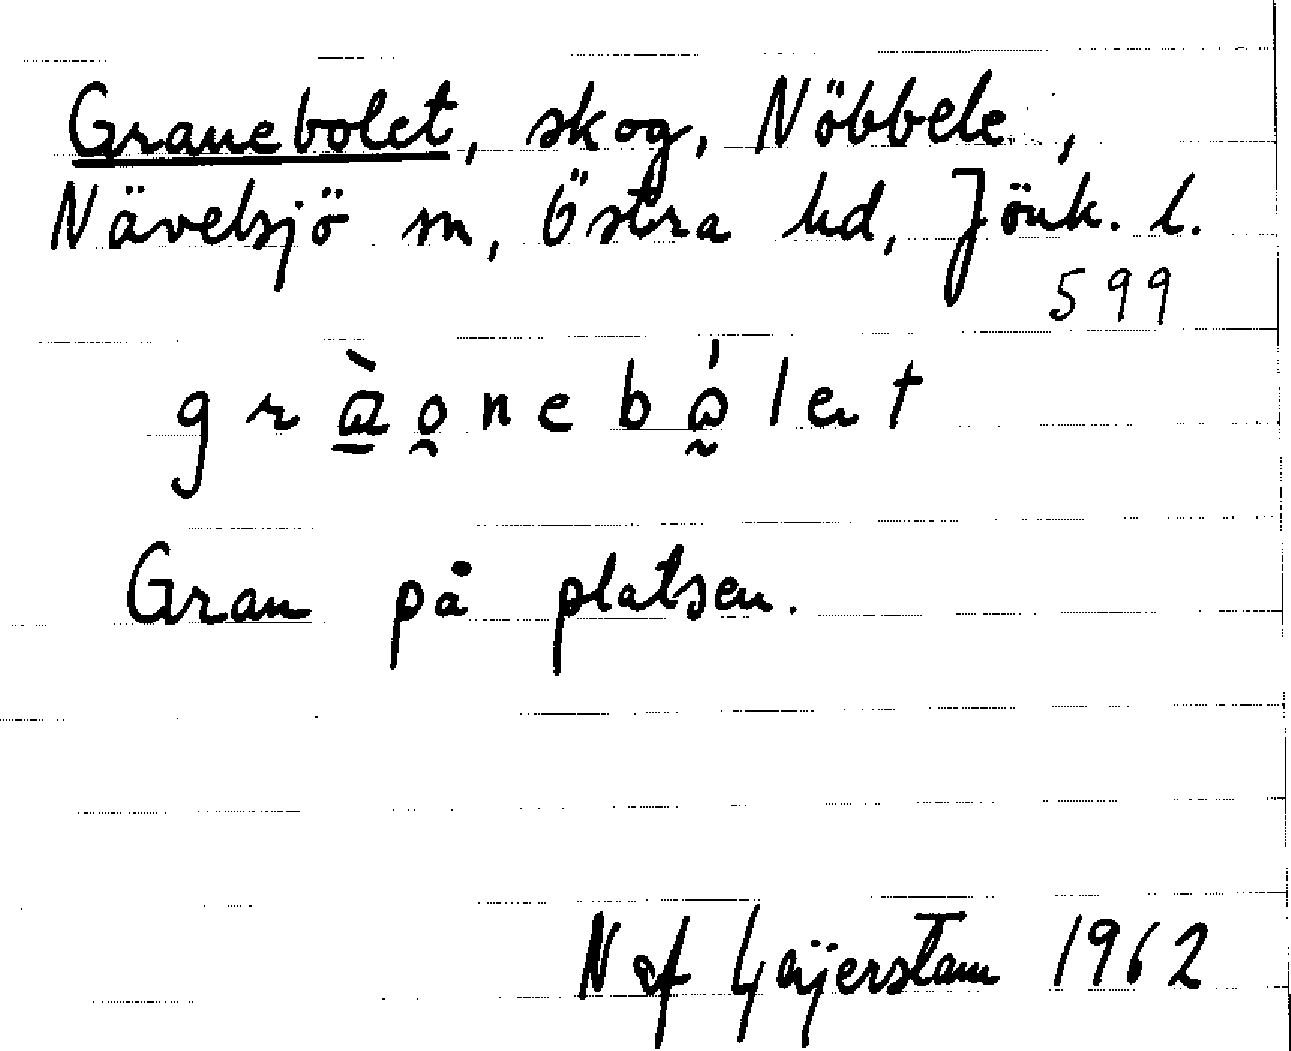 Granebolet, skog, Nöbbele,
Nävelsjö sn, Östra hd, Jönk. l.
599
gràonebólet
Gran på platsen.
N af Geijerstam 1962